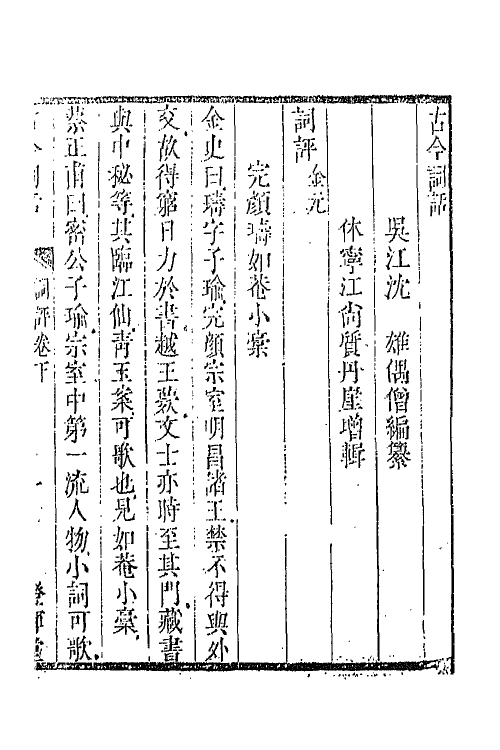 古今詞話
吳江沈　雄偶僧編纂
休寧江尚質丹崖增輯
詞評 金元
完顏璹如菴小槀
金史曰璹字子瑜完顏宗室明昌諸王禁不得與外
交故得窮日力於書越王歿文士亦時至其門藏書
與中秘等其臨江仙青玉案可歌也見如菴小槀
蔡正甫曰密公子瑜宗室中第一流人物小詞可歌
古今詞話　詞評卷下　一